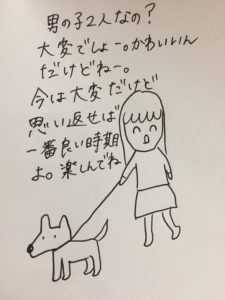 男の子2人なの?
大変でしょー。かわいいん
だけどねー。
今は大変だけど
思い返せば
一番良い時期
よ。楽しんでね